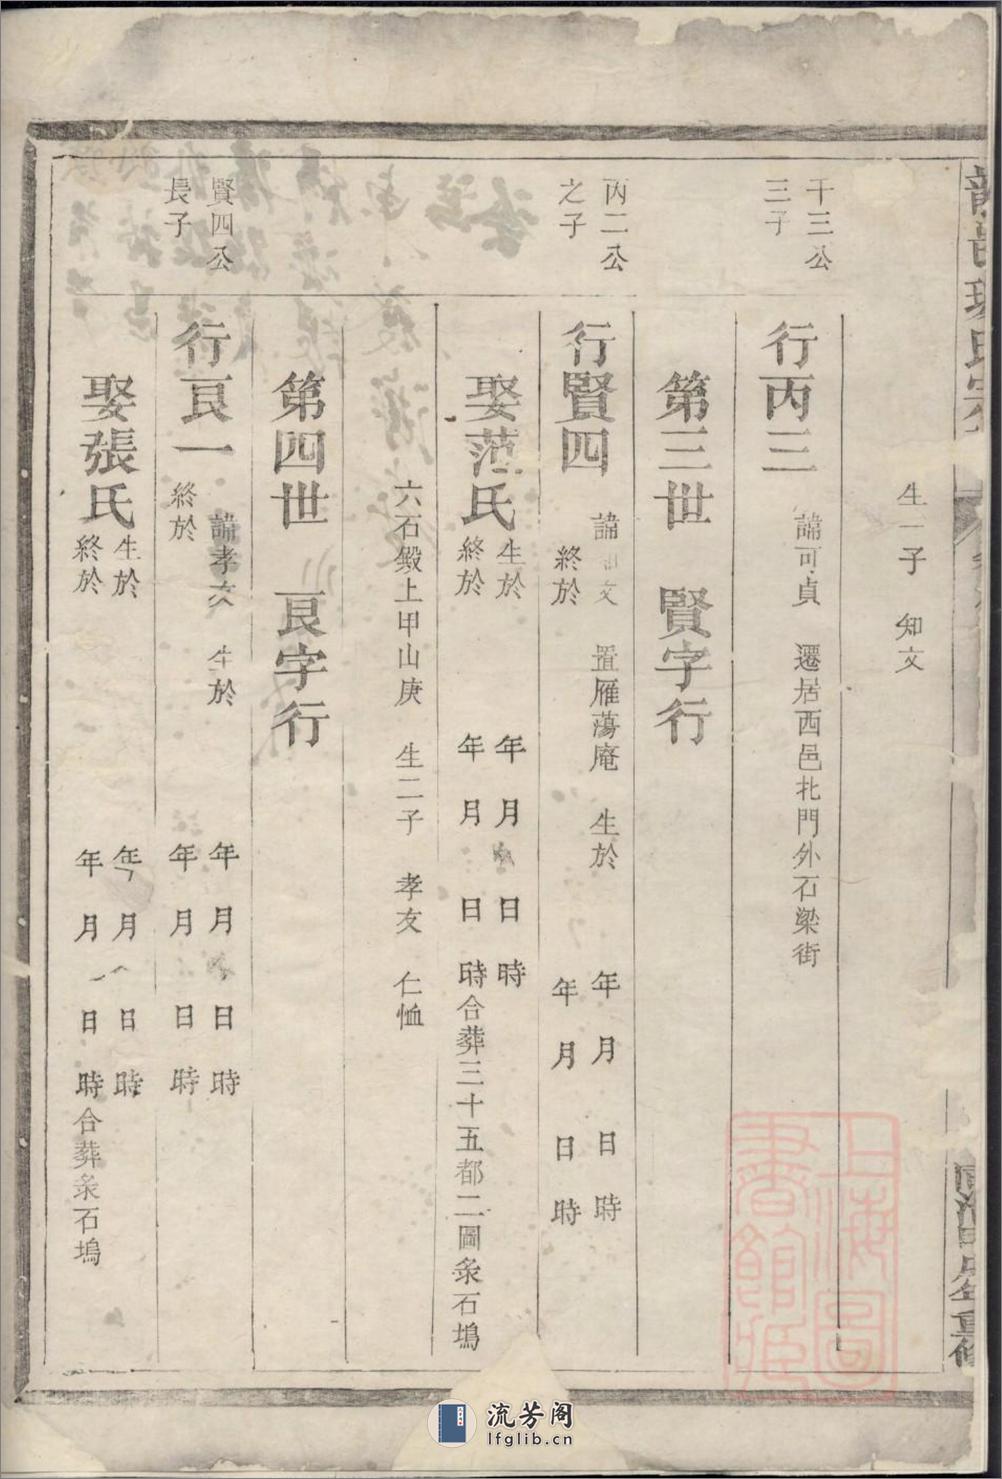 生一子 知文
千三公
三子
行丙三
諱可貞 遷居西邑北門外石梁街
第三世 賢字行
丙二公
之子
行賢四
諱知文 置雁蕩庵 生於 年 月 日 時
終於 年 月 日 時
娶范氏
生於 年 月 日 時
終於 年 月 日 時合葬三十五都二圖条石塢
六石殿上甲山庚 生二子 孝友 仁恤
第四世 良字行
賢四公
長子
行良一
諱孝友 生於 年 月 日 時
終於 年 月 日 時
娶張氏
生於 年 月 日 時
終於 年 月 日 時合葬条石塢
上海圖
書館藏
流芳阁
lfglib.cn